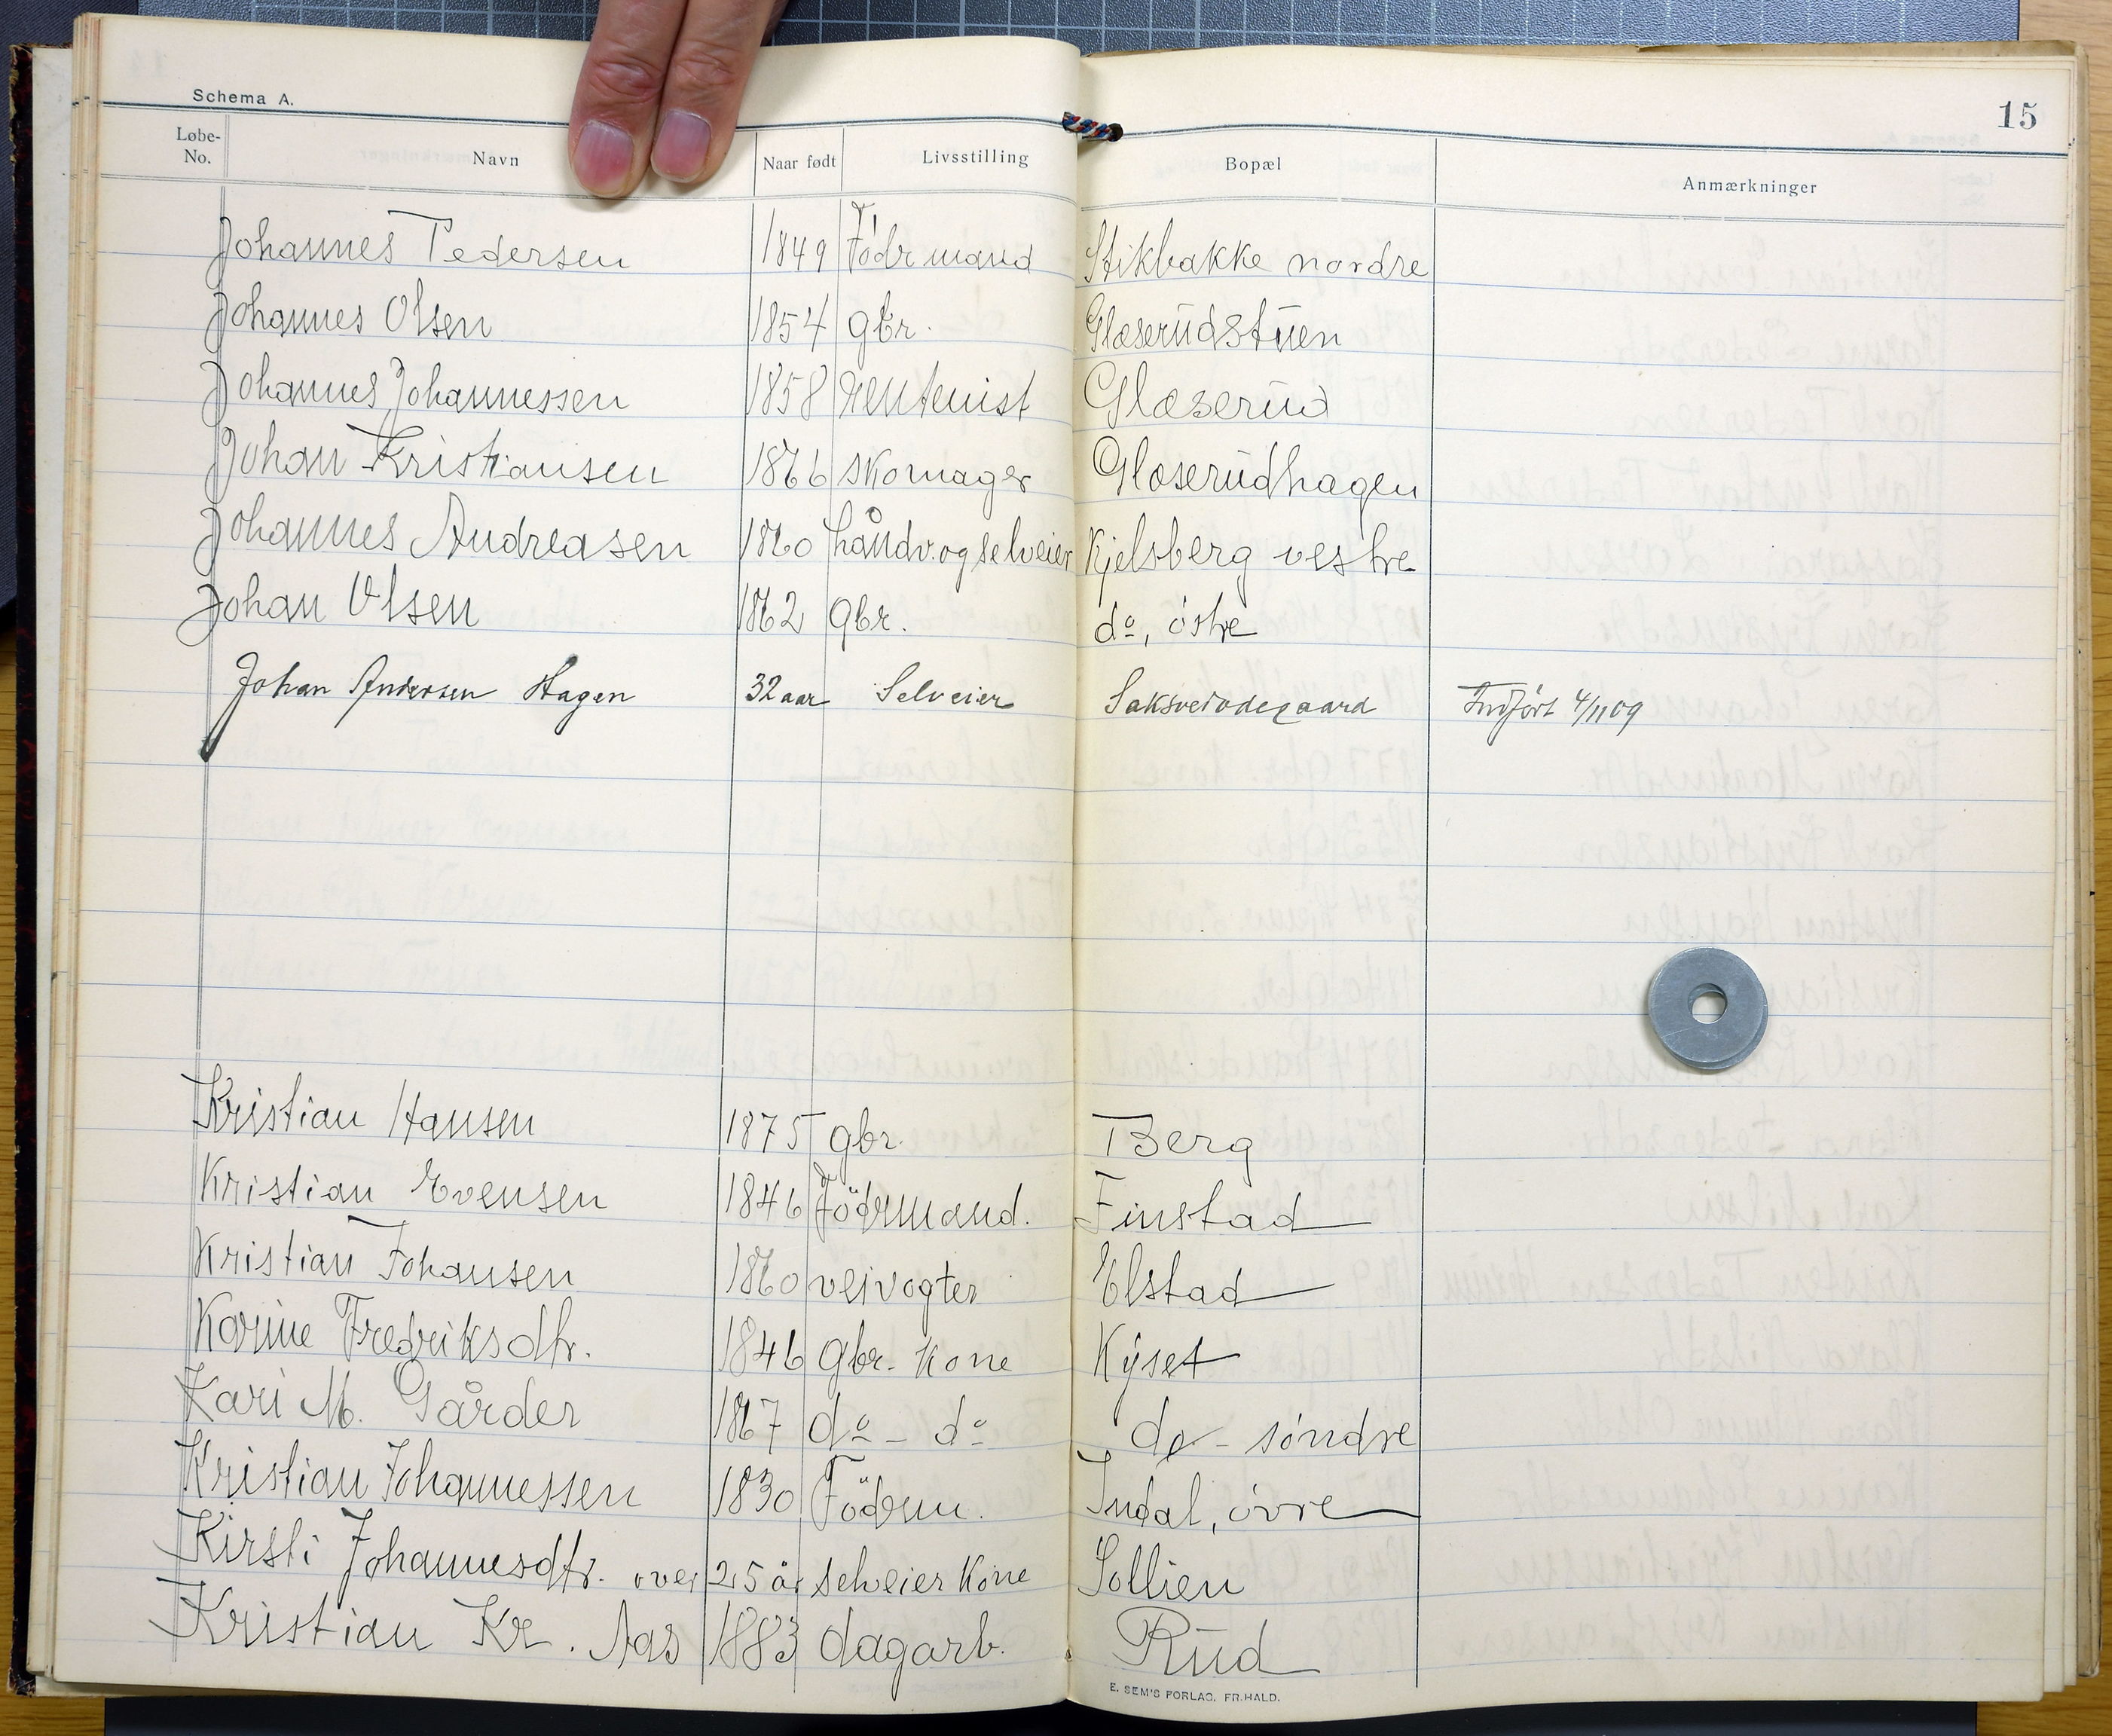 Schema A.
15
Løbe-No. Navn Naar født Livsstilling Bopæl Anmærkninger
Johannes Pedersen 1849 Födr mand Stikbakke nordre
Johannes Olsen 1854 gbr. Glæserudstuen
Johannes Johannessen 1858 rentenist Glæserud
Johan Kristiansen 1866 skomager Glæserudhagen
Johannes Andreasen 1860 håndv. og selveier Kjelsberg vestre
Johan Olsen 1862 gbr. do, östre
Johan Andersen Hagen 32 aar Selveier Saksveiødegaard Indført 4/11 09
Kristian Hansen 1875 gbr. Berg
Kristian Evensen 1846 Födrmand. Finstad
Kristian Johansen 1860 veivogter Elstad
Karine Fredriksdtr. 1846 gbr. kone Kyset
Kari M. Gårder 1867 do - do do - söndre
Kristian Johannessen 1830 Födrm. Indal, övre
Kirsti Johannesdtr. over 25 år selveier kone Sollien
Kristian Kr. Aas 1883 dagarb. Rud
E. SEM'S FORLAG, FR.HALD.